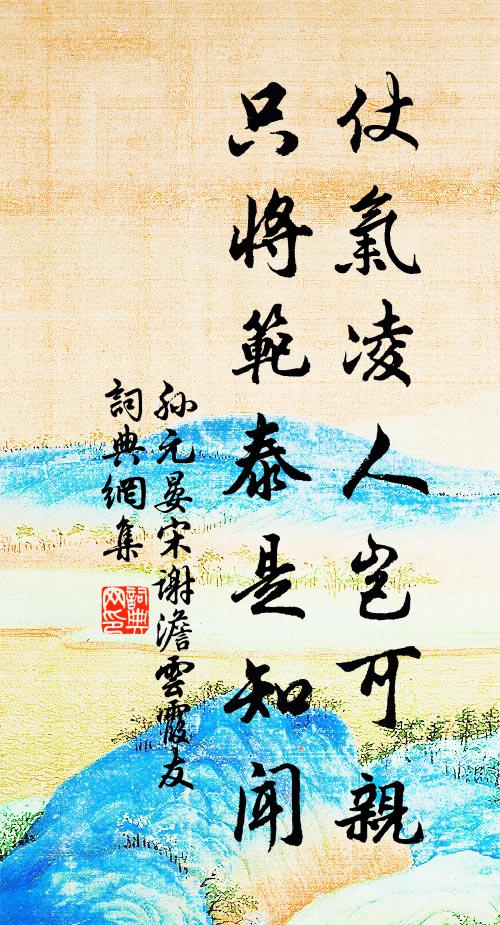 仗氣凌人岂可親
只將範泰是知聞
孙元晏宋謝澹雲霞友
詞典網集
詞典
网印